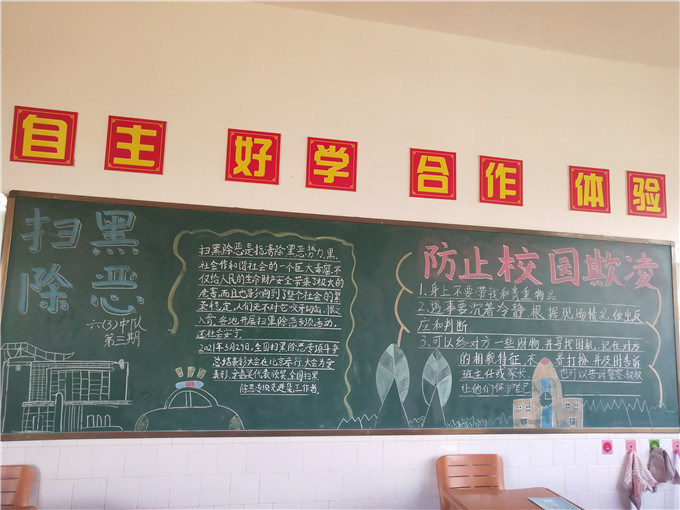 自主 好学 合作 体验
扫黑
除恶
六(3)中队
第三期
扫黑除恶是指清除黑恶势力,黑
社会作和谐社会的一个巨大毒瘤,不
仅给人民的生命财产安全带来了极大的
危害,而且也影响到了整个社会的繁
荣稳定,人们无不对它咬牙切齿,恨
入骨,各地开展扫黑除恶专项活动,
还社会安宁。
2021年3月29日,全国扫黑除恶专项斗争
总结表彰大会在北京举行,大会为受
表彰
代表颁奖,全国扫黑
除恶专项
工作者
防止校园欺凌
1.身上不要带钱和贵重物品
2.遇事要沉着冷静 根据现场情况 做出反
应和判断
3.可以给对方一些财物 并寻找时机,记住对方
的相貌特征,
打扮,并及时告诉
班主任或家长,也可以告诉警察叔叔
让他们保护自己